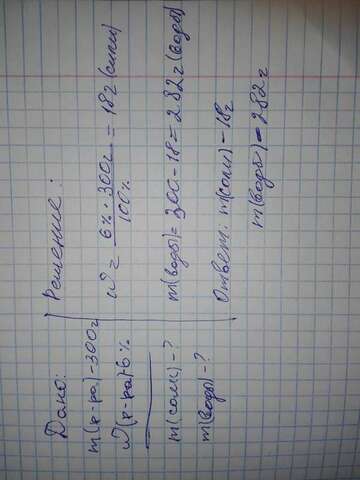 Дано:
m(р-ра) - 300г
w(р-ра) - 6%
m(соли) - ?
m(воды) - ?
Решение:
w = 6% · 300г / 100% = 18г (соли)
m(воды) = 300 - 18 = 282г (воды)
Ответ: m(соли) - 18г
m(воды) = 282г